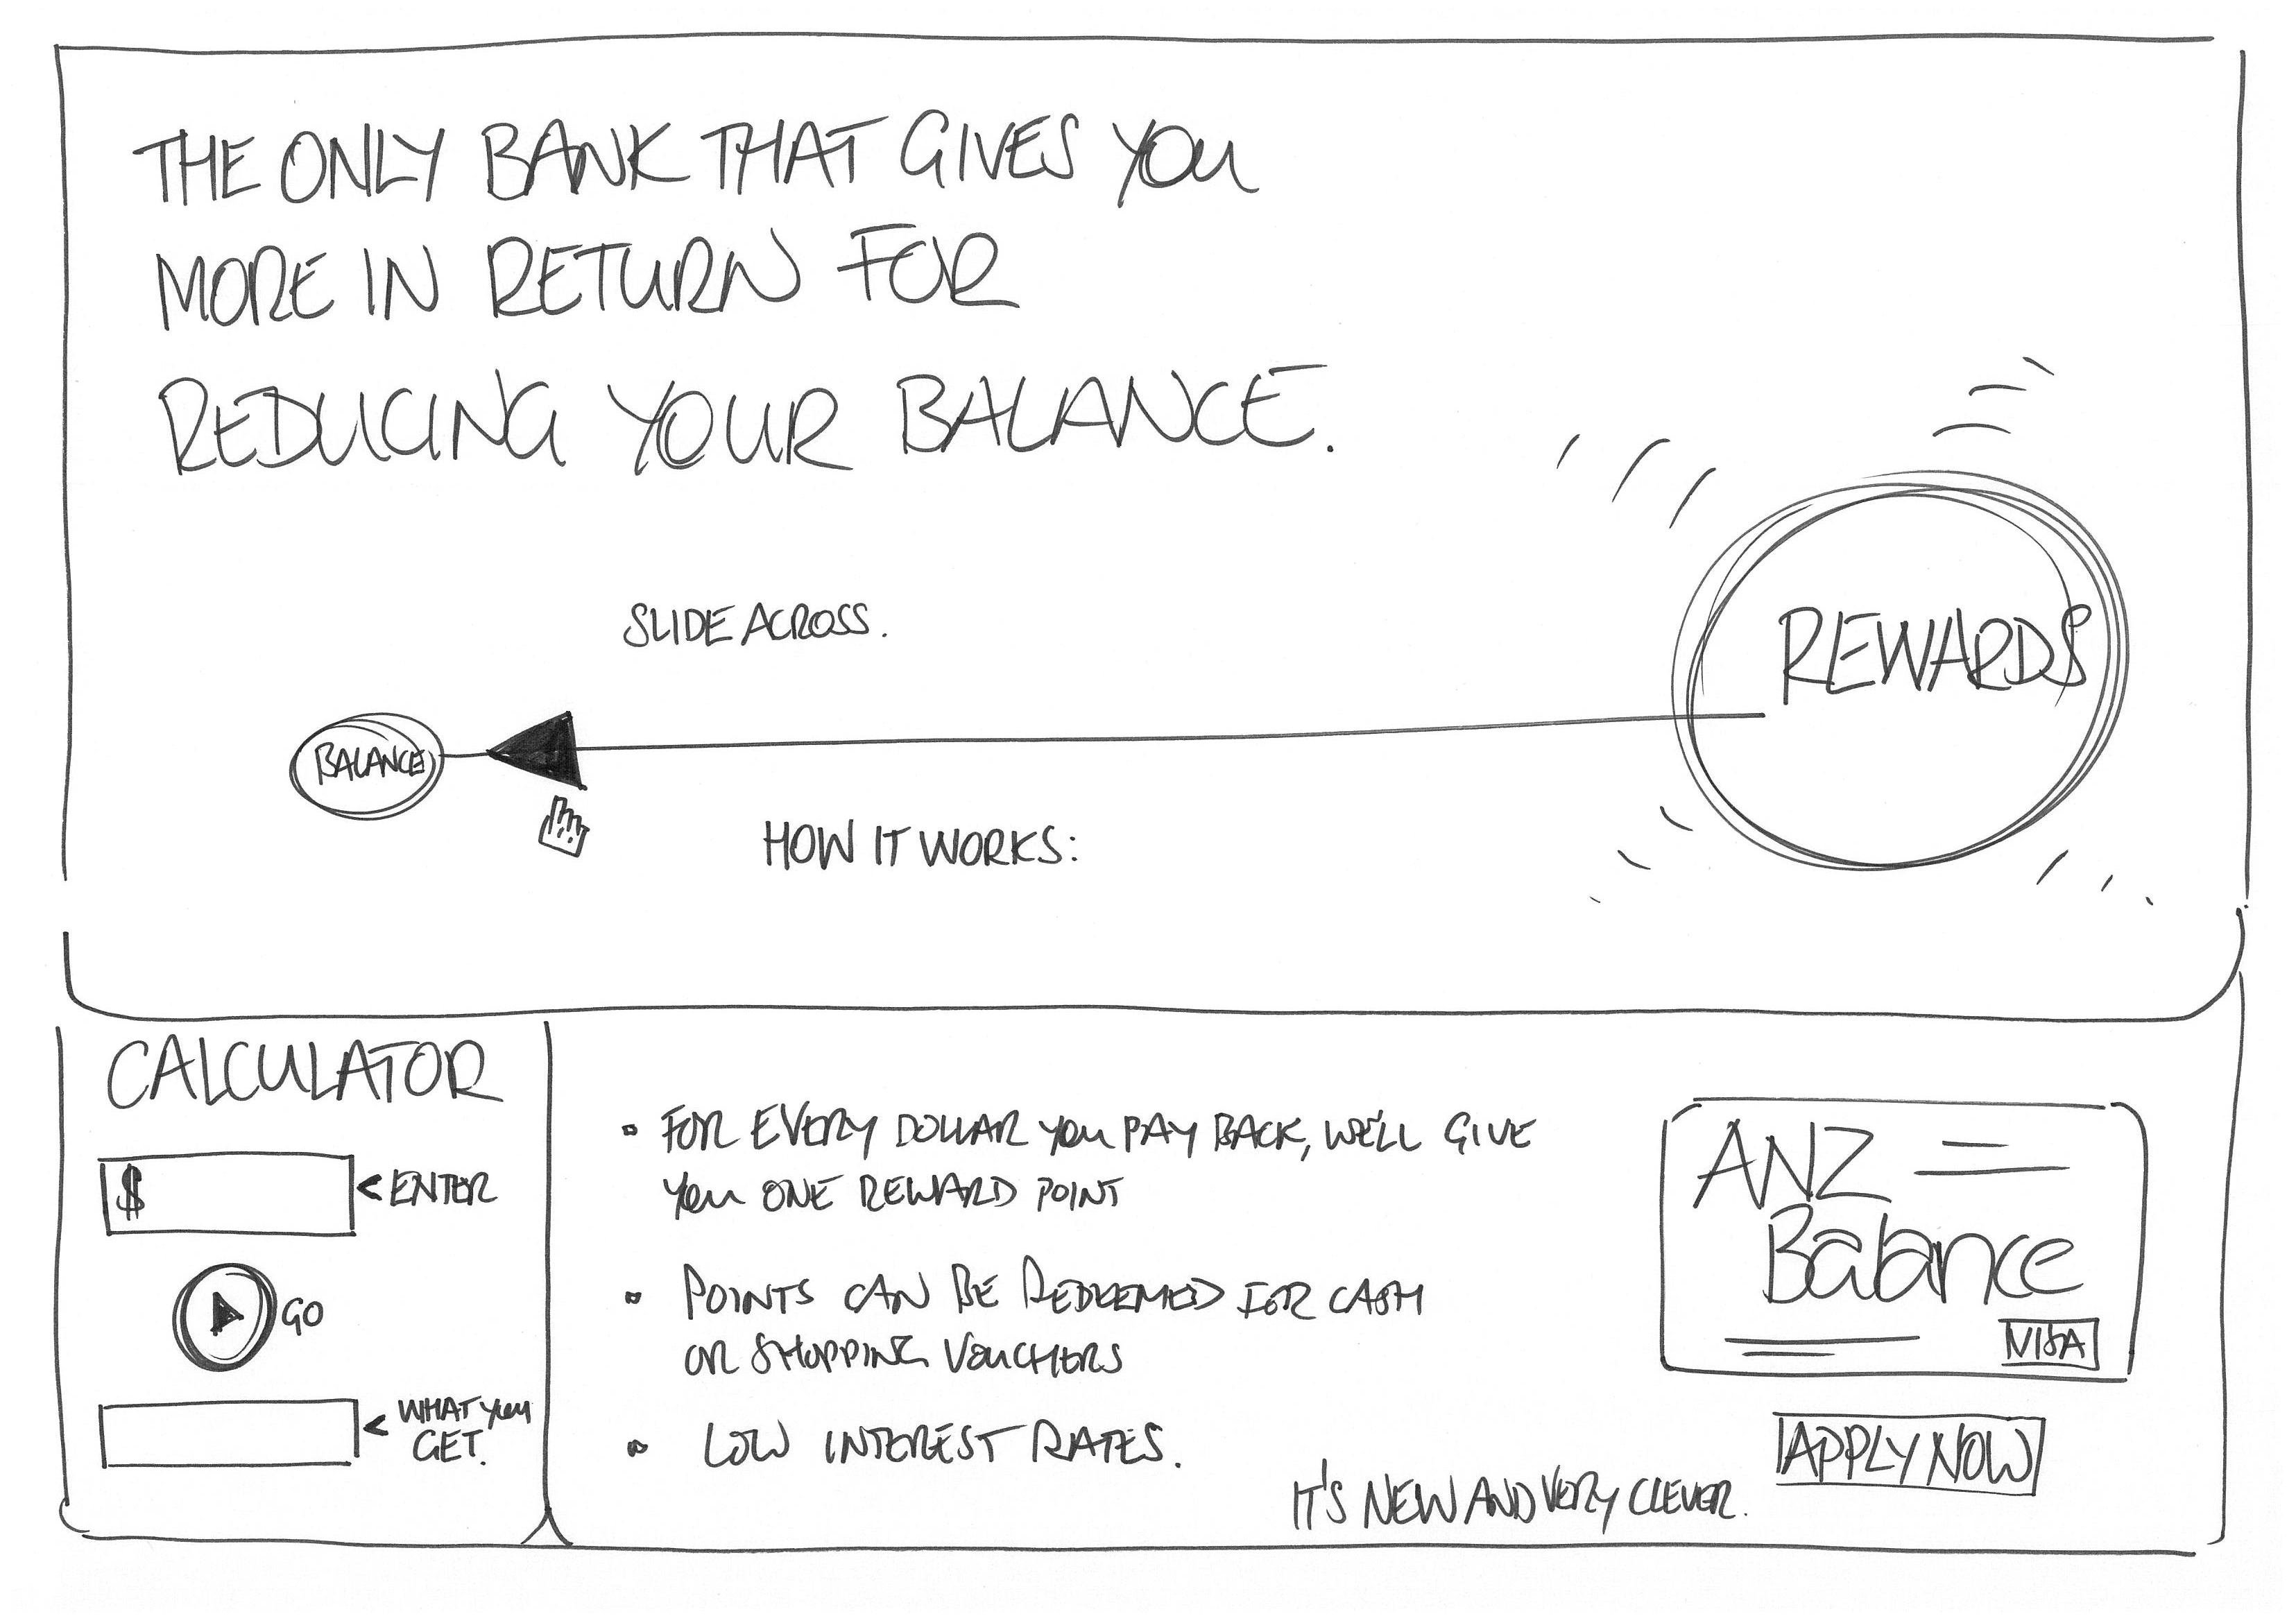 THE ONLY BANK THAT GIVES YOU
MORE IN RETURN FOR
REDUCING YOUR BALANCE.
SLIDE ACROSS.
REWARDS
BALANCE
HOW IT WORKS:
CALCULATOR
$
< ENTER
GO
< WHAT YOU
GET.
• FOR EVERY DOLLAR YOU PAY BACK, WE'LL GIVE
YOU ONE REWARD POINT
• POINTS CAN BE REDEEMED FOR CASH
OR SHOPPING VOUCHERS
• LOW INTEREST RATES.
IT'S NEW AND VERY CLEVER.
ANZ
Balance
VISA
APPLY NOW